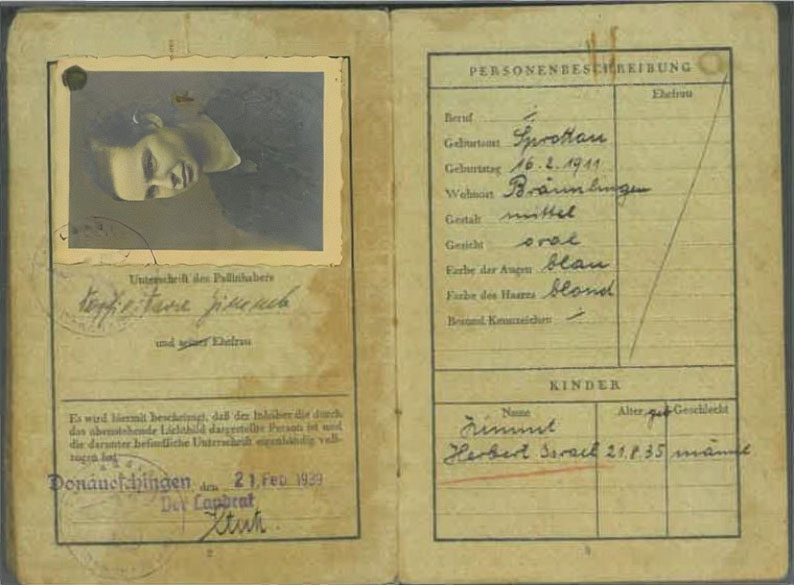 Unterschrift des Paßinhabers
Zimmt
und seiner Ehefrau
Es wird hiermit bescheinigt, daß der Inhaber die durch
das obenstehende Lichtbild dargestellte Person ist und
die darunter befindliche Unterschrift eigenhändig voll-
zogen hat.
Donaueschingen, den 21. Feb. 1939
Der Landrat
2
PERSONENBESCHREIBUNG
Ehefrau
Beruf
Geburtsort Sprottau
Geburtstag 16.2.1911
Wohnort Bräunlingen
Gestalt mittel
Gesicht oval
Farbe der Augen blau
Farbe des Haares blond
Besond. Kennzeichen
KINDER
Name Alter geb Geschlecht
Zimmt
Herbert Israel 21.8.35 männl
3